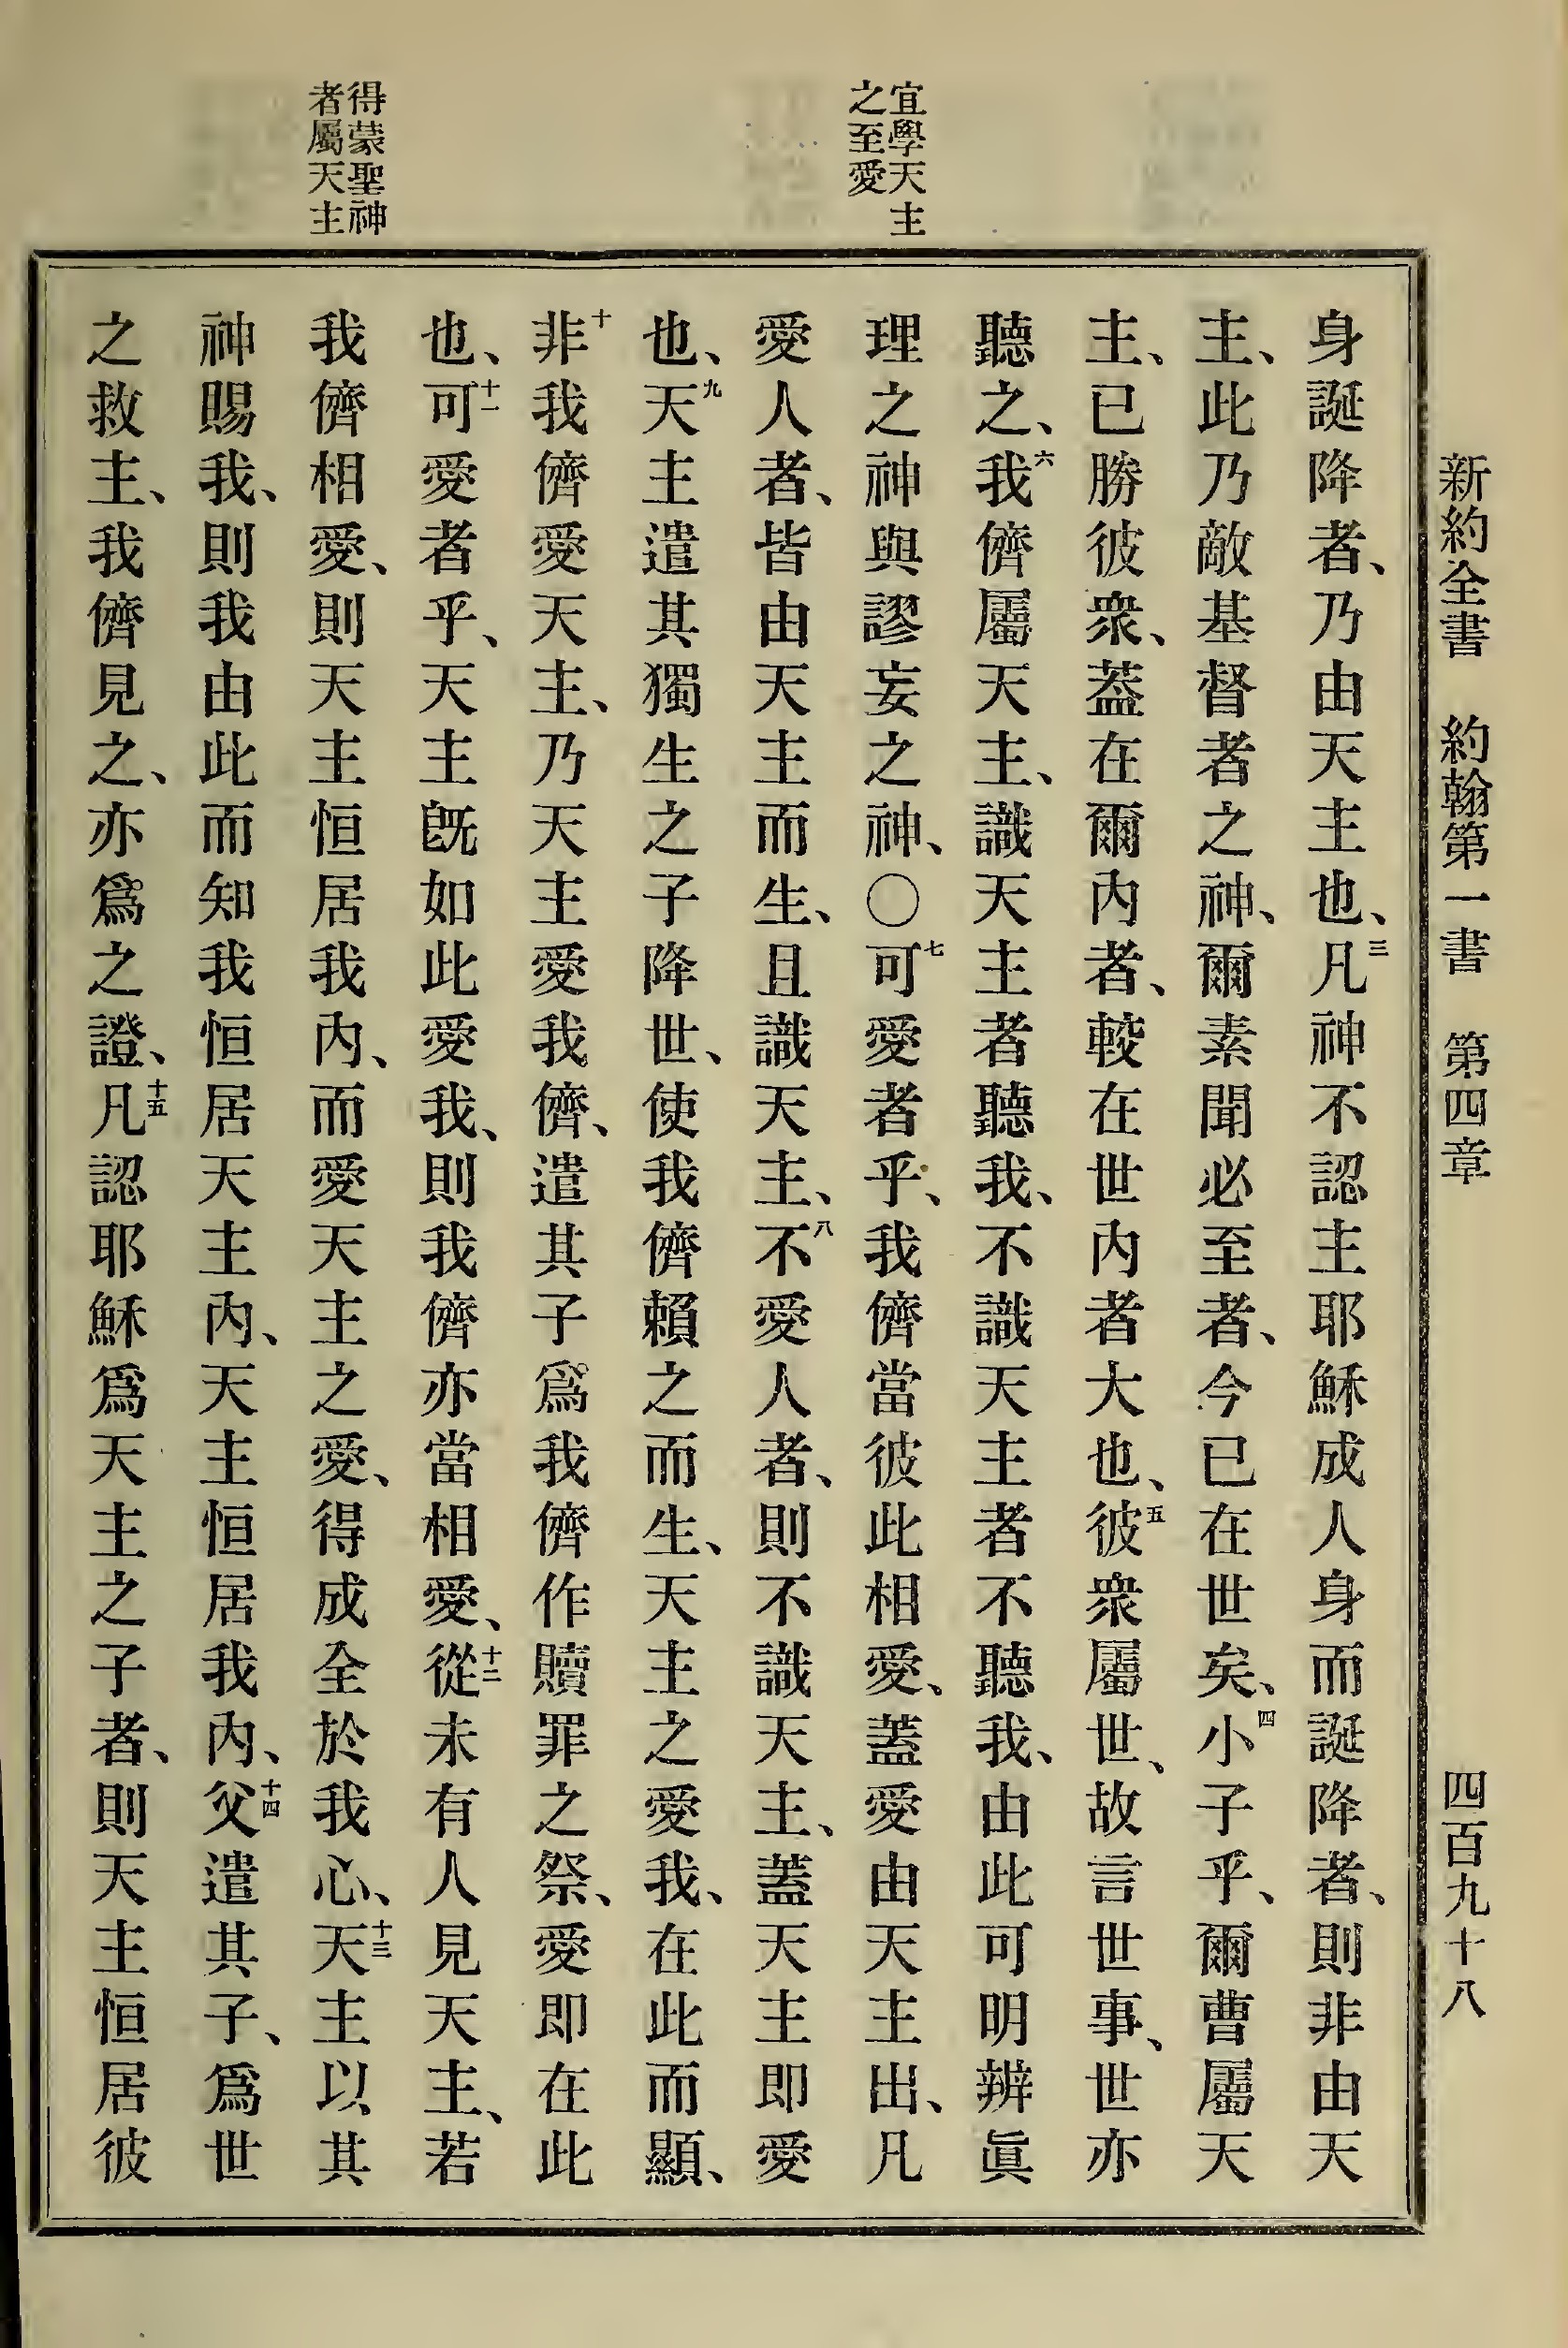 新約全書 約翰第一書 第四章 四百九十八
宜學天主
之至愛
得蒙聖神
者屬天主
身誕降者、乃由天主也、三凡神不認主耶穌成人身而誕降者、則非由天
主、此乃敵基督者之神、爾素聞必至者、今已在世矣、四小子乎、爾曹屬天
主、已勝彼衆、葢在爾內者、較在世內者大也、五彼衆屬世、故言世事、世亦
聽之、六我儕屬天主、識天主者聽我、不識天主者不聽我、由此可明辨眞
理之神與謬妄之神、〇七可愛者乎、我儕當彼此相愛、蓋愛由天主出、凡
愛人者、皆由天主而生、且識天主、八不愛人者、則不識天主、蓋天主即愛
也、九天主遣其獨生之子降世、使我儕賴之而生、天主之愛我、在此而顯、
十非我儕愛天主、乃天主愛我儕、遣其子爲我儕作贖罪之祭、愛即在此
也、十一可愛者乎、天主旣如此愛我、則我儕亦當相愛、十二從未有人見天主、若
我儕相愛、則天主恒居我內、而愛天主之愛、得成全於我心、十三天主以其
神賜我、則我由此而知我恒居天主內、天主恒居我內、十四父遣其子、爲世
之救主、我儕見之、亦爲之證、十五凡認耶穌爲天主之子者、則天主恒居彼